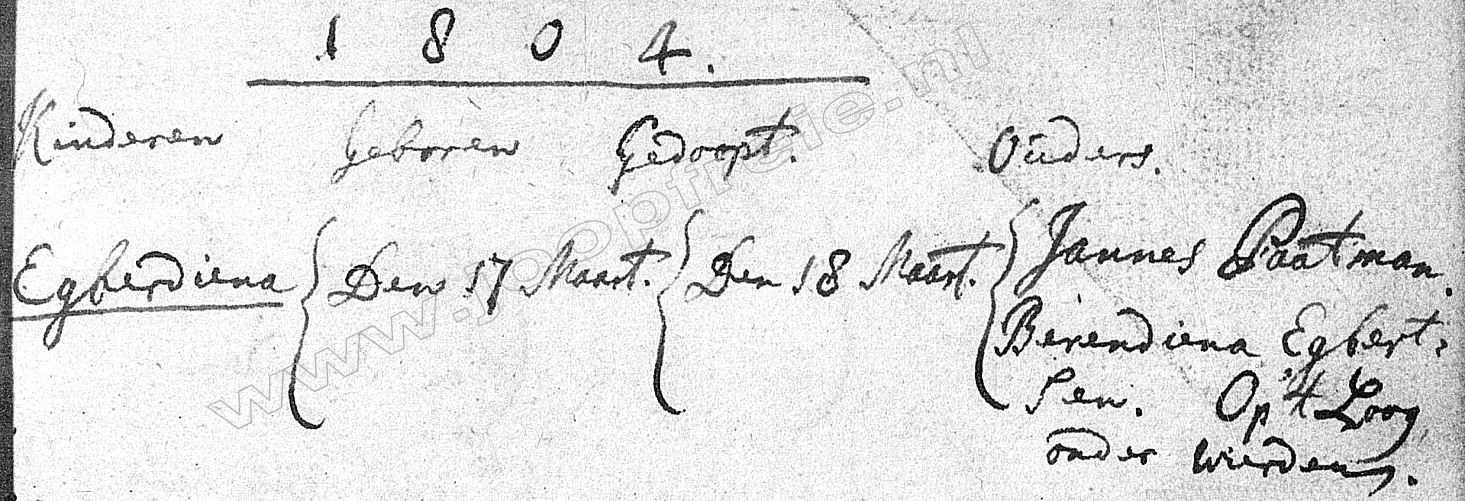 1 8 0 4.
Kinderen Geboren Gedoopt. Ouders.
Egberdiena Den 17 Maart. Den 18 Maart. Jannes Paatman.
Berendiena Egbert=
sen. Op 't Loog,
onder Wierden.
www.jooptreie.nl